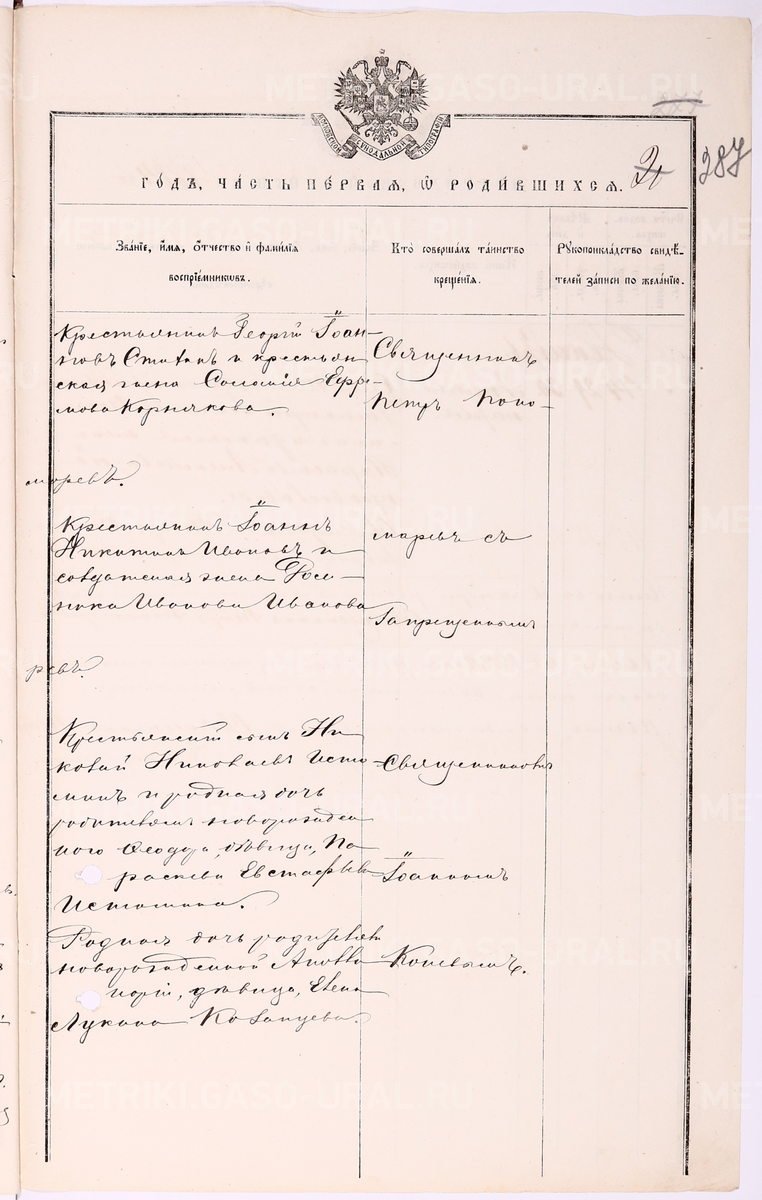 МОСКОВСКОЙ СѴНОДАЛЬНОЙ ТИПОГРАФІИ
287
ГОДЪ, ЧАСТЬ ПЕРВАЯ, Ѿ РОДИВШИХСЯ.
Званїе, имя, отчество и фамилїя
воспрїемниковъ.
Кто совершалъ таинство
крещенїя.
Рукоприкладство свидѣ-
телей записи по желанїю.
Крестьянинъ Георгій Іоан-
новъ и крестьян-
ская жена Соломія Ефре-
мова Корнякова.
Священникъ
Петръ Поно-
маревъ.
Крестьянинъ Іоаннъ
Никитинъ Ивановъ и
солдатская жена
Иванова Иванова
маревъ съ
Запрещеннымъ
ревъ.
Крестьянскій сынъ Ни-
колай Николаевъ Исто-
минъ и родная дочь
родителямъ новорожден-
ного Ѳеодора, дѣвица, Па-
раскева Евстафьева
Истомина.
Священникомъ
Іоанномъ
Родная дочь родителямъ
новорожденной
дѣвица, Елена
Лукина Казанцева.
Коневымъ.
METRIKI.GASO-URAL.RU